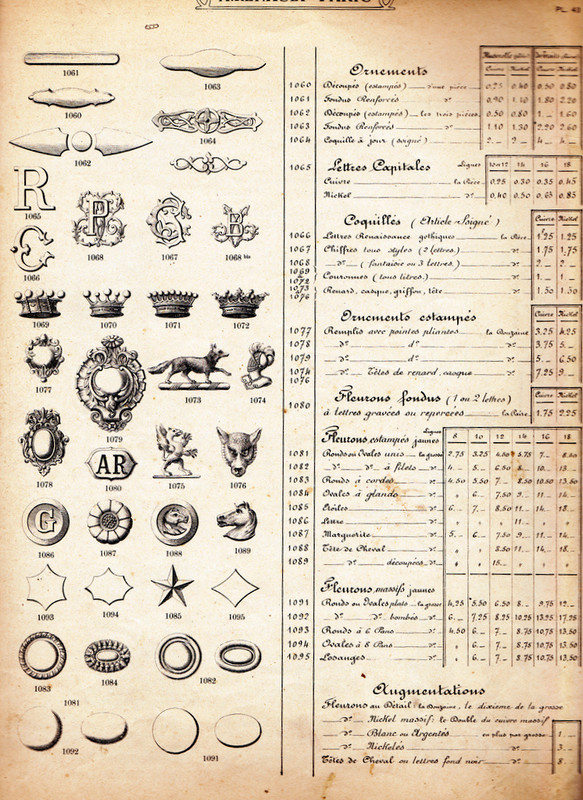 PL. 43
1061
1063
1060
1064
1062
1065
1066
1068
1067
1068 bis
1069
1070
1071
1072
1077
1079
1073
1074
1078
1080
AR
1075
1076
G
1086
1087
1088
1089
1093
1094
1085
1095
1083
1084
1082
1081
1092
1091
Ornements
Cuivre Nickel Cuivre Nickel
1060 Découpés (estampés) 0.25 0.40 0.50 0.80
1061 Fondus Renforcés d° 0.90 1.10 1.80 2.20
1062 Découpés (estampés) les trois pièces 0.50 0.80
1063 Fondus Renforcés d° 1.10 1.30 2.20 2.60
1064 Coquille à jour (soigné) d°
1065 Lettres Capitales Lignes 10 ou 12 14 16 18
Cuivre la Pièce 0.25 0.30 0.35 0.45
Nickel d° 0.40 0.50 0.65 0.85
Coquilles (Article Soigné) Cuivre Nickel
1066 Lettres Renaissance gothiques la Pièce 1.25 1.25
1067 Chiffres tous styles (2 lettres) d° 1.75 1.75
1068 d° (fantaisie ou 3 lettres) d° 2 2
1069 à 1072 Couronnes (tous titres) d° 1 1
1073 1076 Renard, casque, griffon, tête d° 1.50 1.50
Ornements estampés Cuivre Nickel
1077 Remplis avec pointes pliantes la Douzaine 3.25 4.25
1078 d° d° d° 3.75 5
1079 d° d° d° 5 6.50
1074 1076 d° Têtes de renard, casque d° 7.25 9
1080 Fleurons fondus (1 ou 2 lettres) Cuivre Nickel
à lettres gravées ou repercées la Pièce 1.75 2.25
Fleurons, estampés jaunes Lignes 8 10 12 14 16 18
1081 Ronds ou Ovales unis la grosse 2.75 3.25 4.50 5.75 7 8.50
1082 d° d° à filets d° 4 5 6.50 8 10 13
1083 Ronds à cordes d° 4.50 5.50 7 8.50 10.50 13.50
1084 Ovales à glands d° 6 7.50 9 11 14
1085 Etoiles d° 6 7 8.50 11 14 18
1086 Lettre d° 11
1087 Marguerite d° 5 6 7.50 9 11 14
1088 Tête de Cheval d° 8.50 11 14 18
1089 d° découpées d° 15
Fleurons, massifs jaunes
1091 Ronds ou Ovales plats la grosse 4.25 5.50 6.50 8 9.75 12
1092 d° d° bombés d° 6 7.25 8.25 10.25 13.25 17.25
1093 Ronds à 6 Pans d° 4.50 6 7 8.75 10.75 13.50
1094 Ovales à 8 Pans d° 6 7 8.75 10.75 13.50
1095 Losanges d° 6 7 8.75 10.75 13.50
Augmentations
Fleurons au Détail: la Douzaine, le dixième de la grosse
d° Nickel massif: le Double du cuivre massif
d° Blanc ou Argentés en plus par grosse 1
d° Nickelés d° 3
Têtes de Cheval ou lettres fond noir d° 8